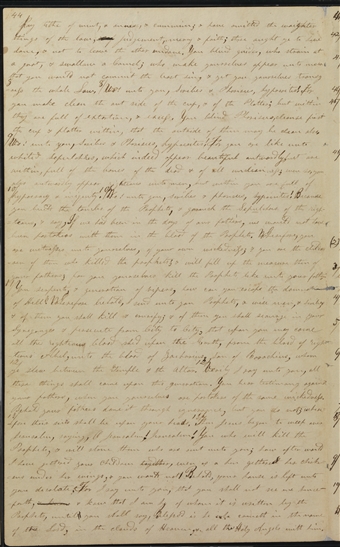 44
pay tithe of mint, & anise, & cummin, & have omitted the weightier
things of the law, judgement, mercy, & faith; these ought ye to have
done, & not to leave the other undone. You blind guides, who strain at
a gnat, & swallow a camel; who make yourselves appear unto men
that you would not commit the least sin, & yet you yourselves transg
ress the whole law. Wo unto you, Scribes & Pharisees, hypocrites, for
you make clean the out side of the cup, & of the Platter; but within
they are full of extortion, & excess. You blind Pharisees cleanse first
the cup & platter within, that the outside of them may be clean also
Wo unto you, Scribes & Pharisees, hypocrites, for you are like unto
whited sepulchres, which indeed appear beautiful outwardly but are
within, full of the bones of the dead & of all uncleanness, even so you
also outwardly appear righteous unto men, but within you are full of
hypocrisy & iniquity. Wo unto you, scribes & pharisees, hypocrites, Because
you build the tombs of the Prophets, & garnish the sepulchres of the righ
teous, & say, if we had been in the days of our fathers, we would not have
been partakers with them in the blood of the Prophets; Wherefore, you
are witnesses unto yourselves, of your own wickedness, & you are the children
of them who killed the prophets & will fill up the measure then of
your fathers; for you yourselves kill the Prophets like unto your fathers
You serpents, & generation of vipers, how can you escape the damnation
of hell? Wherefore behold, I send unto you Prophets, & wise men, & scribes
& of them you shall kill & crucify, & of them you shall scourge in your
Synagogues & persecute from City to City, that upon you may come
all the righteous blood shed upon the Earth, from the blood of right
eous Abel, unto the blood of Zacharias, son of Barachias, whom
ye slew between the temple & the Altar. Verily I say unto you, all
these things shall come upon this generation. You bear testimony against
your fathers, when you yourselves are partakers of the same wickedness.
Behold your fathers done it through ignorance, but you do not, wherefore
upon their sins shall be upon your heads. Then Jesus began to weep over
Jerusalem, saying, O Jerusalem! Jerusalem! You who will kill the
Prophets, & will stone those who are sent unto you; how often would I
have gathered your Children together, even as a hen gathers her chick
ens under her wings, & you would not. Behold, your house is left unto
you desolate. For I say unto you, that you shall not see me hence
forth, & know that I am he, of whom it is written by the
Prophets, until you shall say, Blessed is he who cometh in the name
of the Lord, in the clouds of Heaven, & all the Holy Angels with him